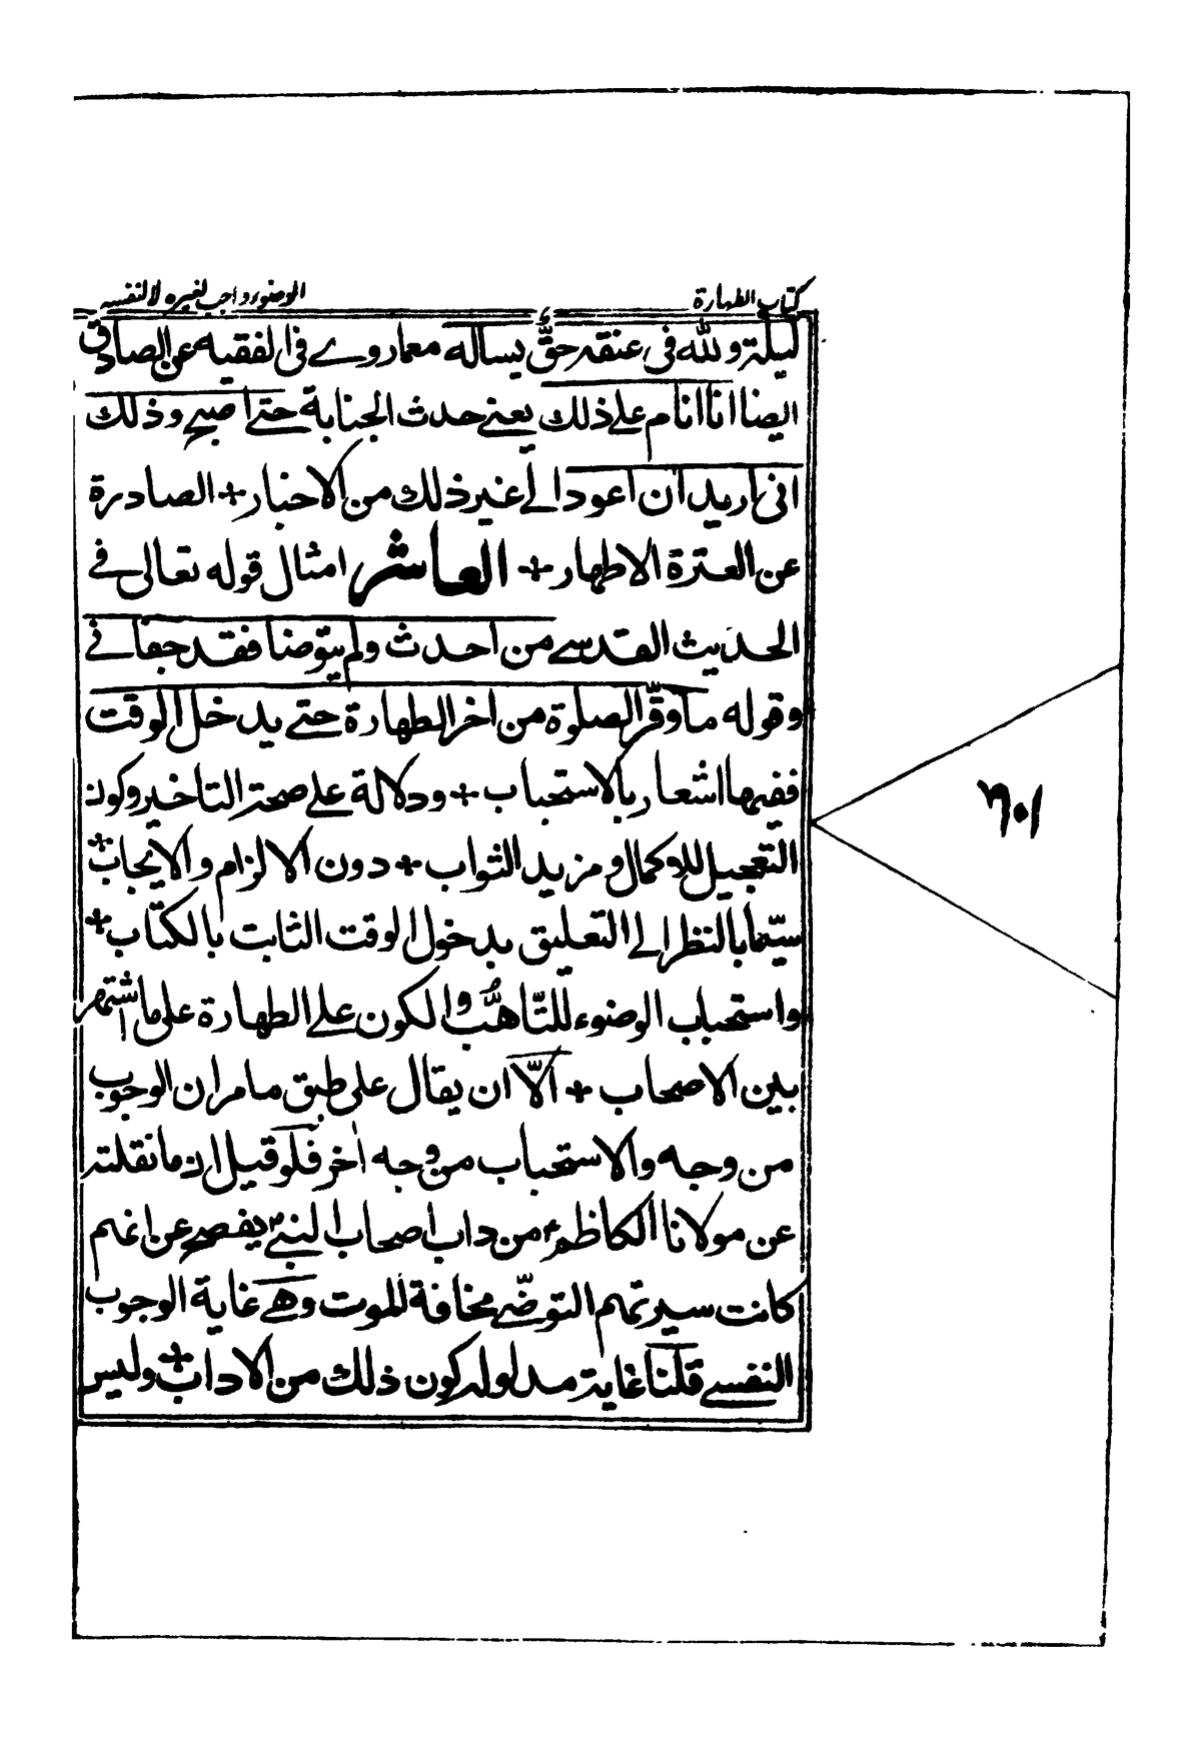 كتاب الطهارة
الوضوء واجب لغيره لا لنفسه
ليلة ولله فى عنقه حقّ يساله معما روے فى الفقيه عن الصادق ع
ايضا انا انام على ذلك يعنى حدث الجنابة حتى اصبح وذلك
انى اريد ان اعود الى غير ذلك من الاخبار + الصادرة
عن العترة الاطهار + العاشر امثال قوله تعالى فے
الحديث القدسے من احدث ولم يتوضا فقد جفانے
وقوله ما وقّر الصلوة من اخر الطهارة حتى يدخل الوقت
ففيها اشعار بالاستحباب + ودلالة على صحة التاخير وكون
التعجيل للاكمال ومزيد الثواب + دون الالزام والايجاب +
سيّما بالنظر الى التعليق بدخول الوقت الثابت بالكتاب +
واستحباب الوضوء للتّاهّب والكون على الطهارة على ما اشتهر
بين الاصحاب + الّا ان يقال على طبق ما مر ان الوجوب
من وجه والاستحباب من وجه اخر فلو قيل ان ما نقلته
عن مولانا الكاظم ع من داب اصحاب النبى ص يفصح عن انهم
كانت سيرتهم التوضّى مخافة للموت وهے غاية الوجوب
النفسے قلنا غاية مدلوله كون ذلك من الاداب + وليس